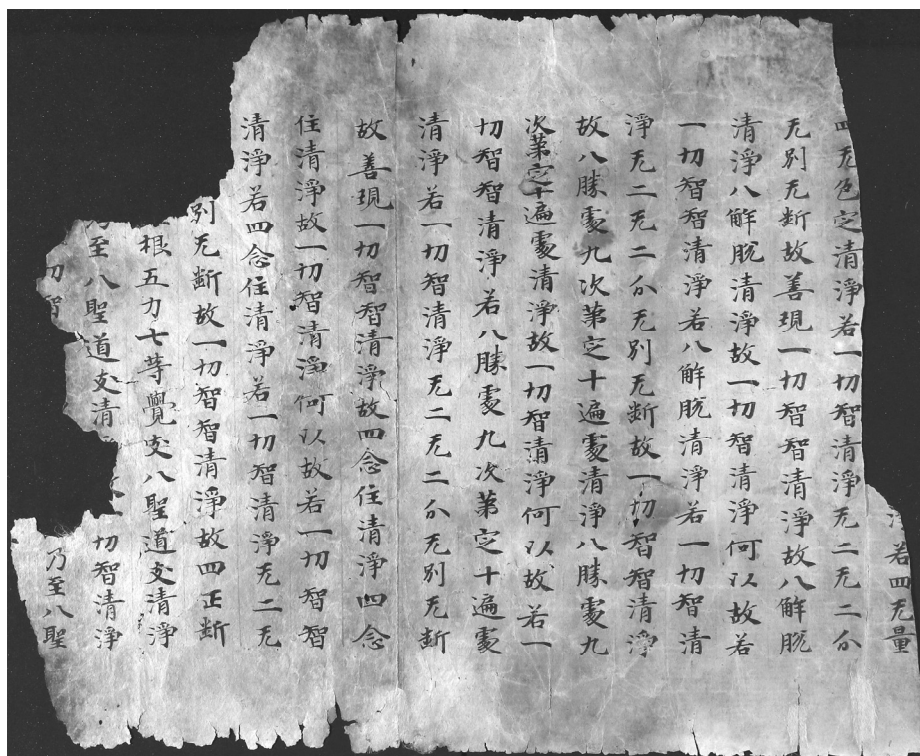 若四无量
四无色定清淨若一切智清淨无二无二分
无別无断故善現一切智智清淨故八解脫
清淨八解脫清淨故一切智清淨何以故若
一切智智清淨若八解脫清淨若一切智清
淨无二无二分无別无断故一切智智清淨
故八勝處九次第定十遍處清淨八勝處九
次第定十遍處清淨故一切智清淨何以故若一
切智智清淨若八勝處九次第定十遍處
清淨若一切智清淨无二无二分无別无断
故善現一切智智清淨故四念住清淨四念
住清淨故一切智清淨何以故若一切智智
清淨若四念住清淨若一切智清淨无二无
別无断故一切智智清淨故四正断
根五力七等覺支八聖道支清淨
乃至八聖道支清切智清淨
切智乃至八聖